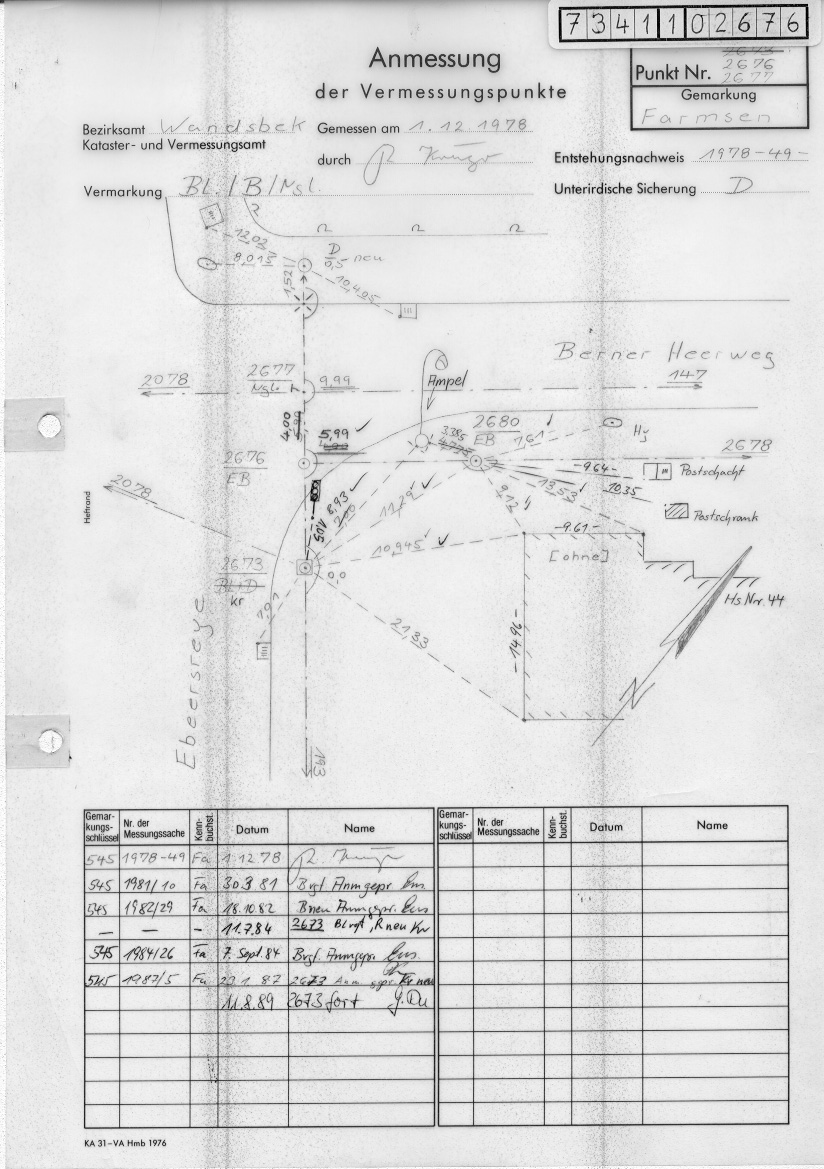 7341102676
Anmessung
der Vermessungspunkte
2673
Punkt Nr. 2676
2677
Gemarkung
Farmsen
Bezirksamt Wandsbek Gemessen am 1.12.1978
Kataster- und Vermessungsamt
durch R. Krüger Entstehungsnachweis 1978-49-
Vermarkung BL./B/Ngl. Unterirdische Sicherung D
12,02
D
8,015 0,5 neu
1,52 10,405
Berner Heerweg
2078 2677 9,99 Ampel 147
Ngl.
4,00 5,99
5,99 2680
EB 3,385 7,61 Hy
2676 2678
EB
9,64 Postschacht
2078 13,53 10,35
8,93 11,29 9,12 Postschrank
7,00
9,61
2673 10,945 [ohne]
BL+D 0,0
kr Hs Nr. 44
1,91
21,33 14,96
N
Ebeersreye
193
Heftrand
Gemarkungsschlüssel Nr. der Messungssache Kennbuchst. Datum Name
Gemarkungsschlüssel Nr. der Messungssache Kennbuchst. Datum Name
545 1978-49 Fa 1.12.78 R. Krüger
545 1981/10 Fa 30.3.81 Brgt Anm gepr.
545 1982/29 Fa 18.10.82 Bneu Anm gepr.
— — - 11.7.84 2673 BLrgt, R neu Kr
545 1984/26 Fa 7. Sept. 84 Brgt. Anm gepr.
545 1987/5 Fa 23.1.87 2673 Anm gepr. Kr neu
11.8.89 2673 fort
KA 31-VA Hmb 1976